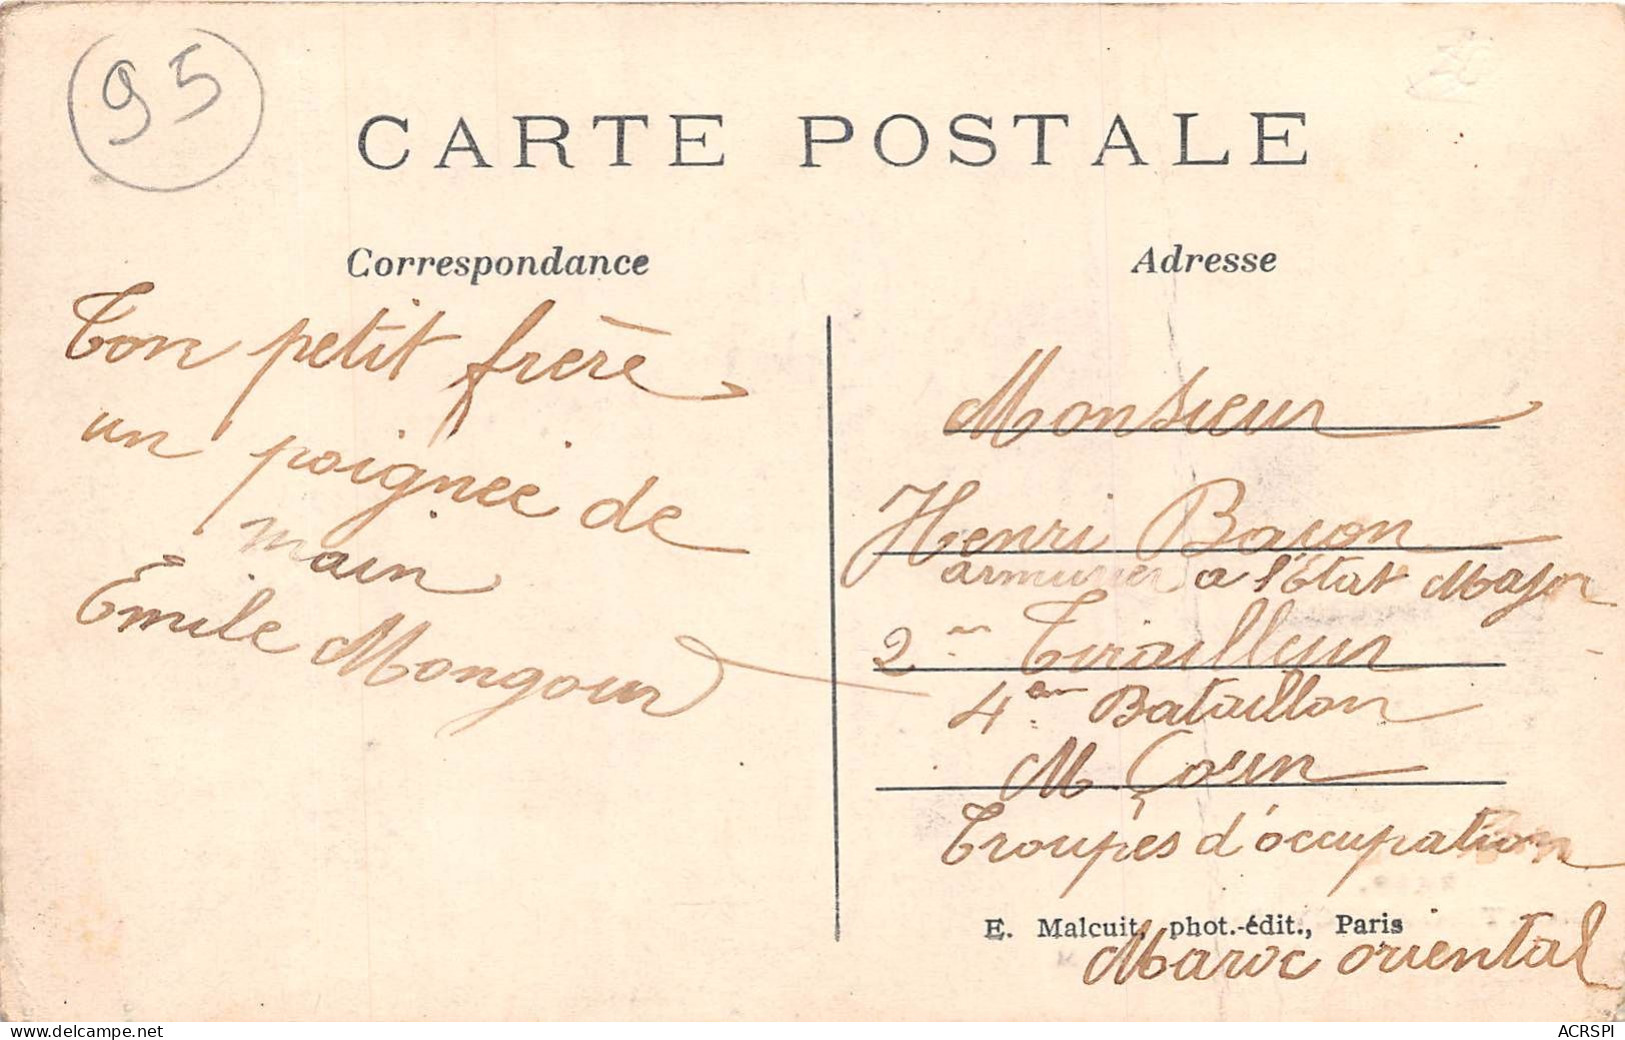 95
CARTE POSTALE
Correspondance
Ton petit frère
un poignée de
main
Emile Mongour
Adresse
Monsieur
Henri Bacon
armurier a l'Etat Major
2em Tirailleur
4em Bataillon
M. Çoun
Troupes d'occupation
E. Malcuit, phot.-édit., Paris
Maroc oriental
ACRSPI